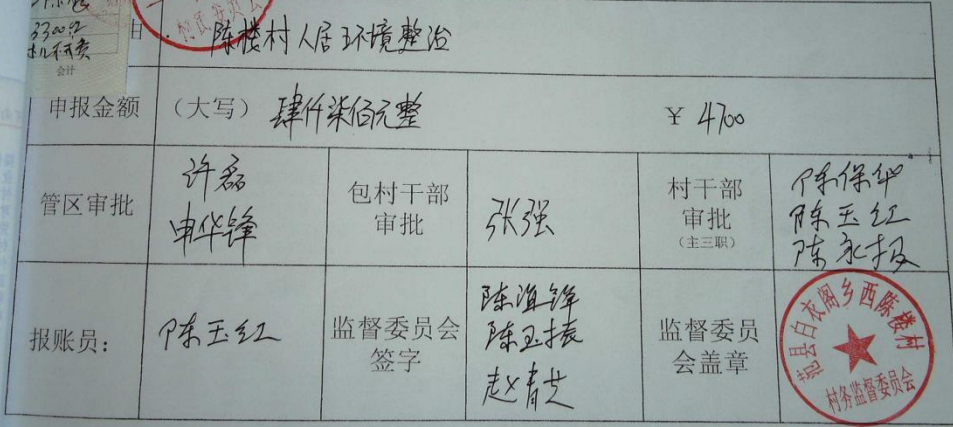 3300元
会计
由
村民委员会
陈楼村人居环境整治
申报金额
（大写）肆仟柒佰元整
￥4700
管区审批
许磊
申华锋
包村干部
审批
张强
村干部
审批
（主三职）
陈保华
陈玉红
陈永报
报账员：
陈玉红
监督委员会
签字
陈道锋
陈玉振
赵青芝
监督委员
会盖章
范县白衣阁乡西陈楼村
村务监督委员会